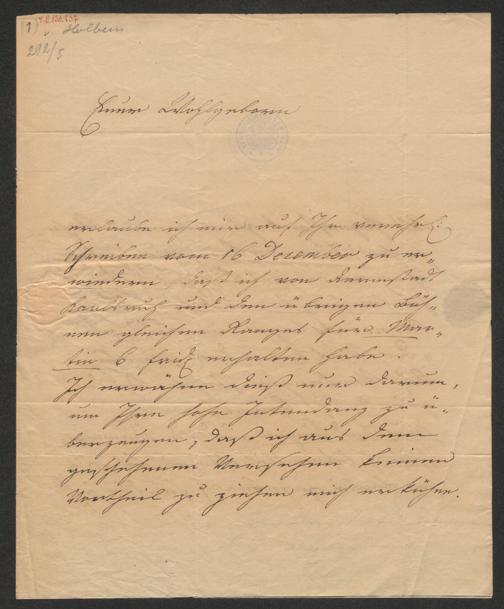 (1) I.N. 136.137
v. Holbein
212/5
Euer Wohlgeborn
erlaube ich mir auf Ihr verehrl:
Schreiben vom 16 December zu er-
wiedern, daß ich von Darmstadt
Karlsruh und den übrigen Büh-
nen gleichen Ranges für Mar-
tin 6 erhalten habe.
Ich erwähne dieß nur darum,
um Ihre hohe Intendanz zu ü-
berzeugen, daß ich aus dem
geschehenen Versehen keinen
Vortheil zu ziehen mich erkühne.